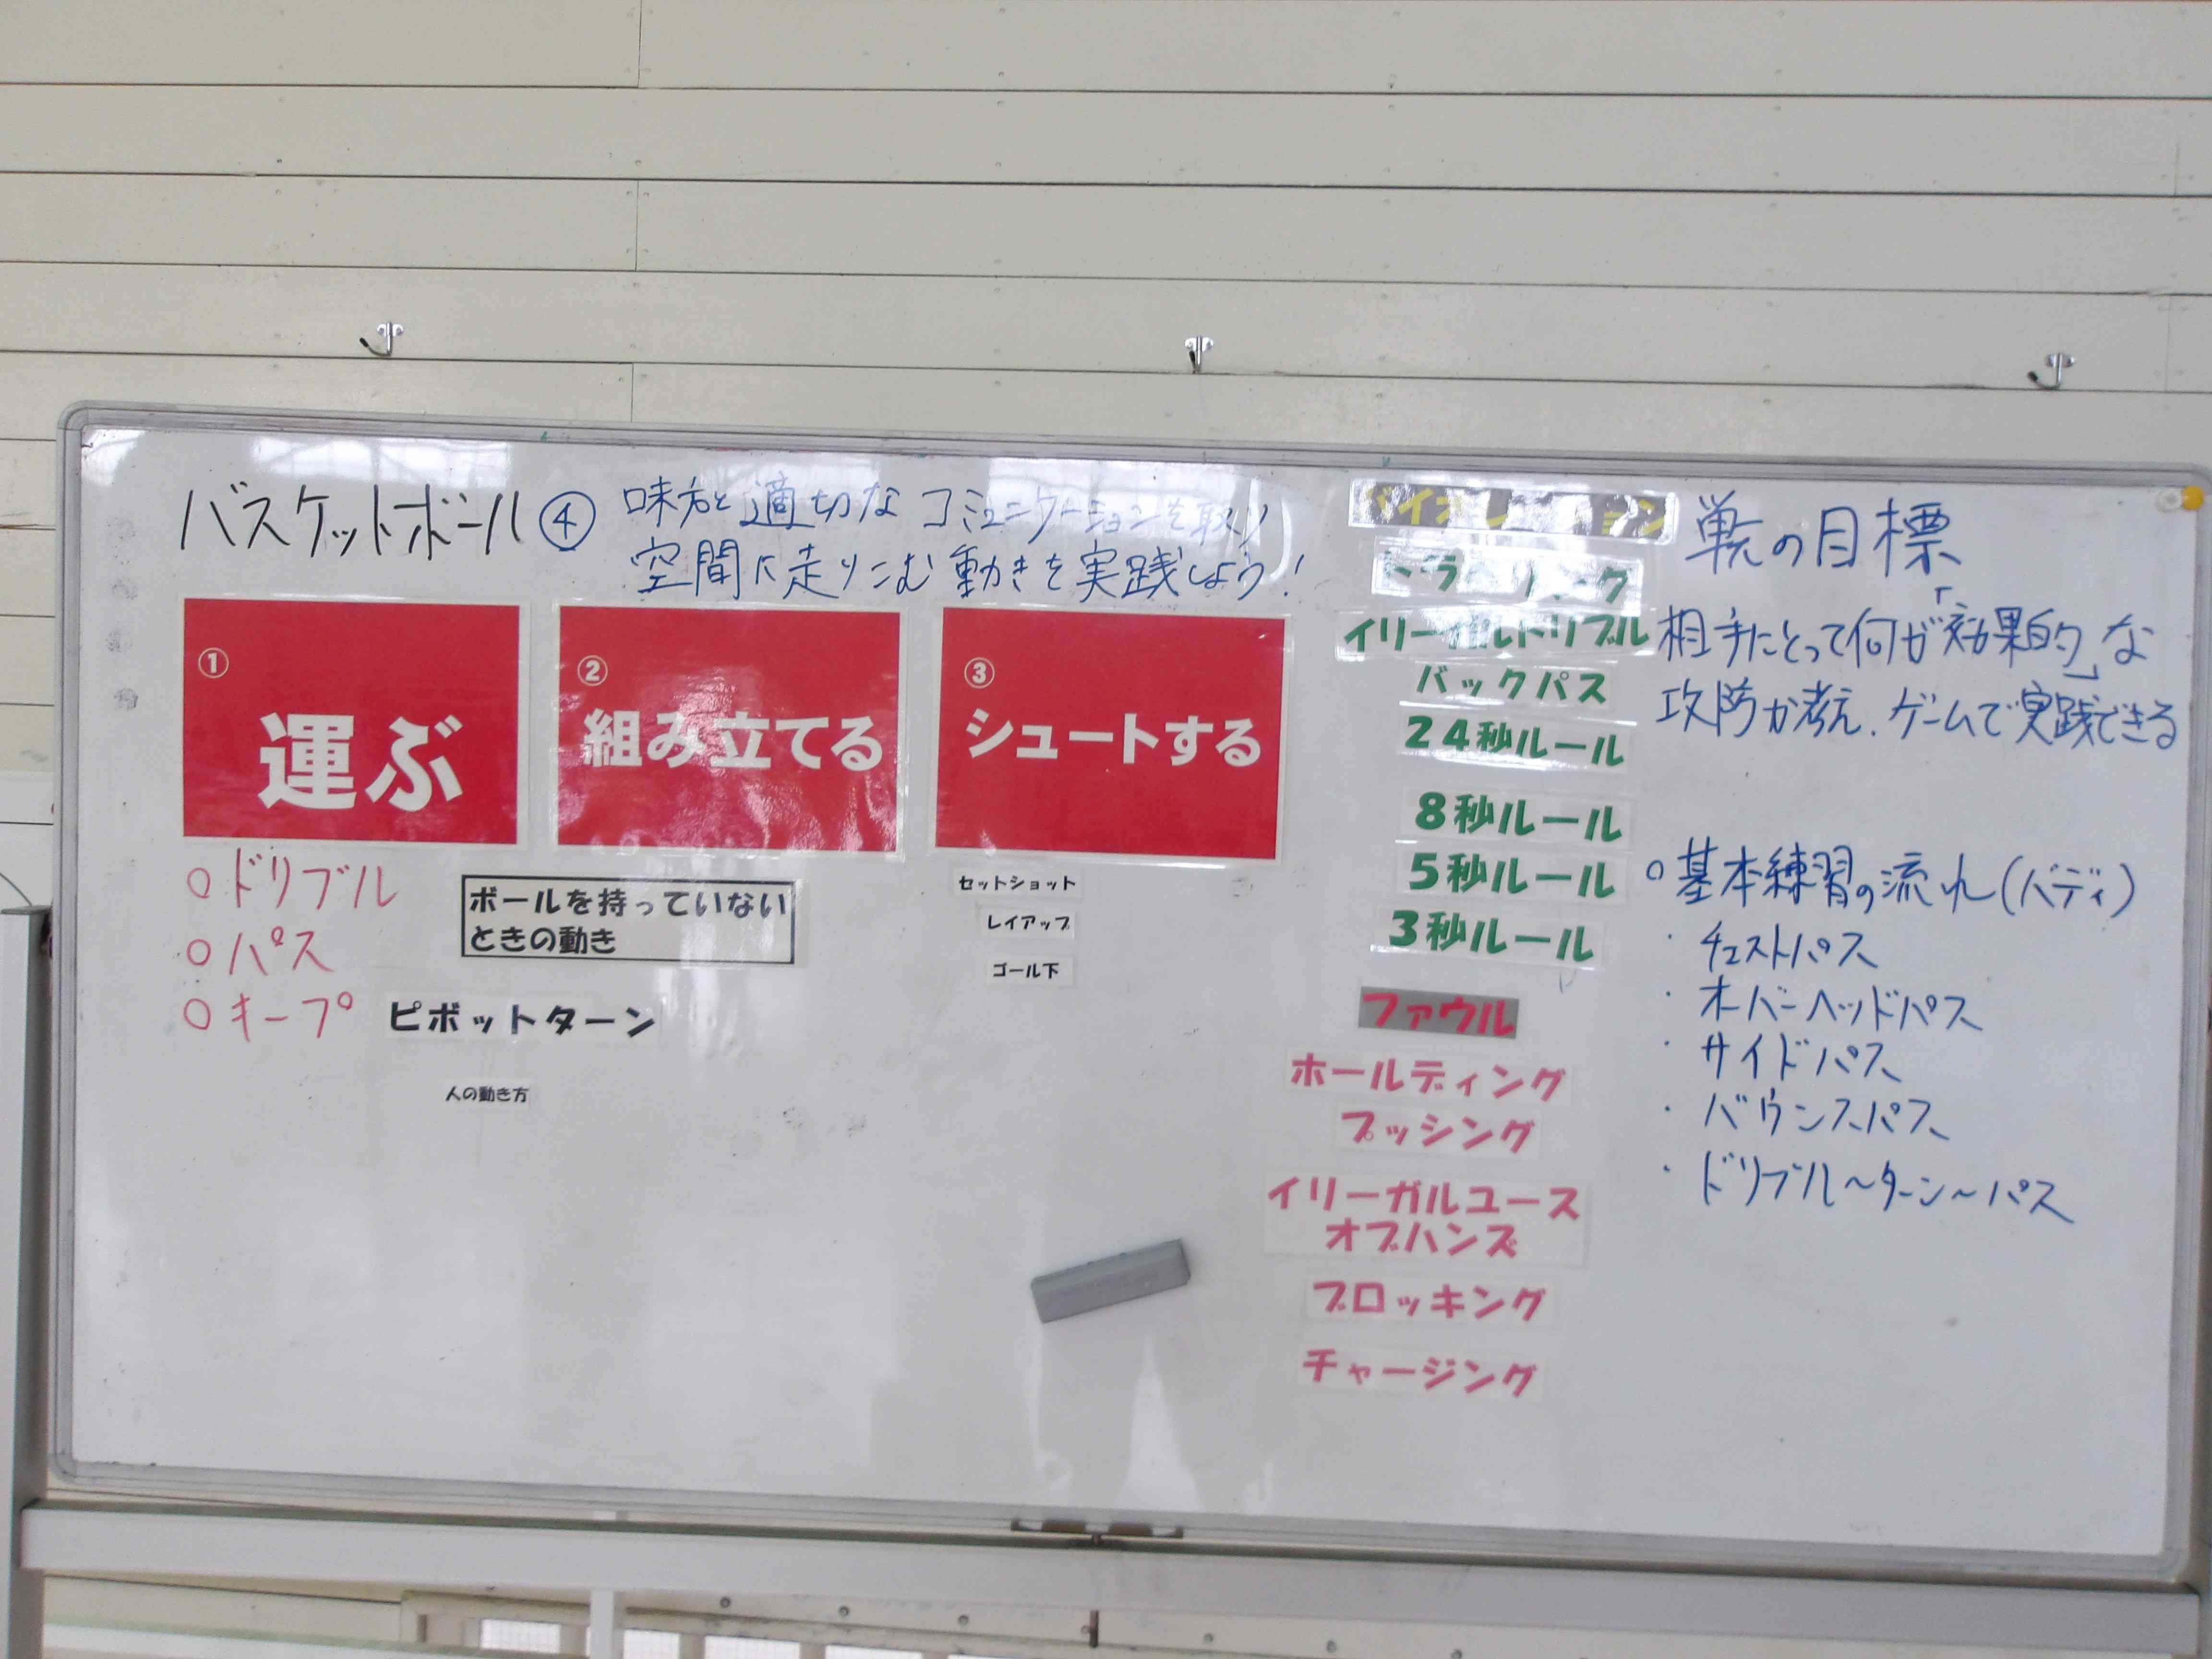 バスケットボール④
味方と適切なコミュニケーションを取り
空間に走りこむ動きを実践しよう！
①
運ぶ
②
組み立てる
③
シュートする
○ドリブル
○パス
○キープ
ピボットターン
人の動き方
ボールを持っていない
ときの動き
セットショット
レイアップ
ゴール下
バイオレーション
トラベリング
イリーガルドリブル
バックパス
24秒ルール
8秒ルール
5秒ルール
3秒ルール
ファウル
ホールディング
プッシング
イリーガルユース
オブハンズ
ブロッキング
チャージング
の目標
相手にとって何が「効果的」な
攻防か考え、ゲームで実践できる
○基本練習の流れ(バディ)
・チェストパス
・オーバーヘッドパス
・サイドパス
・バウンスパス
・ドリブル～ターン～パス